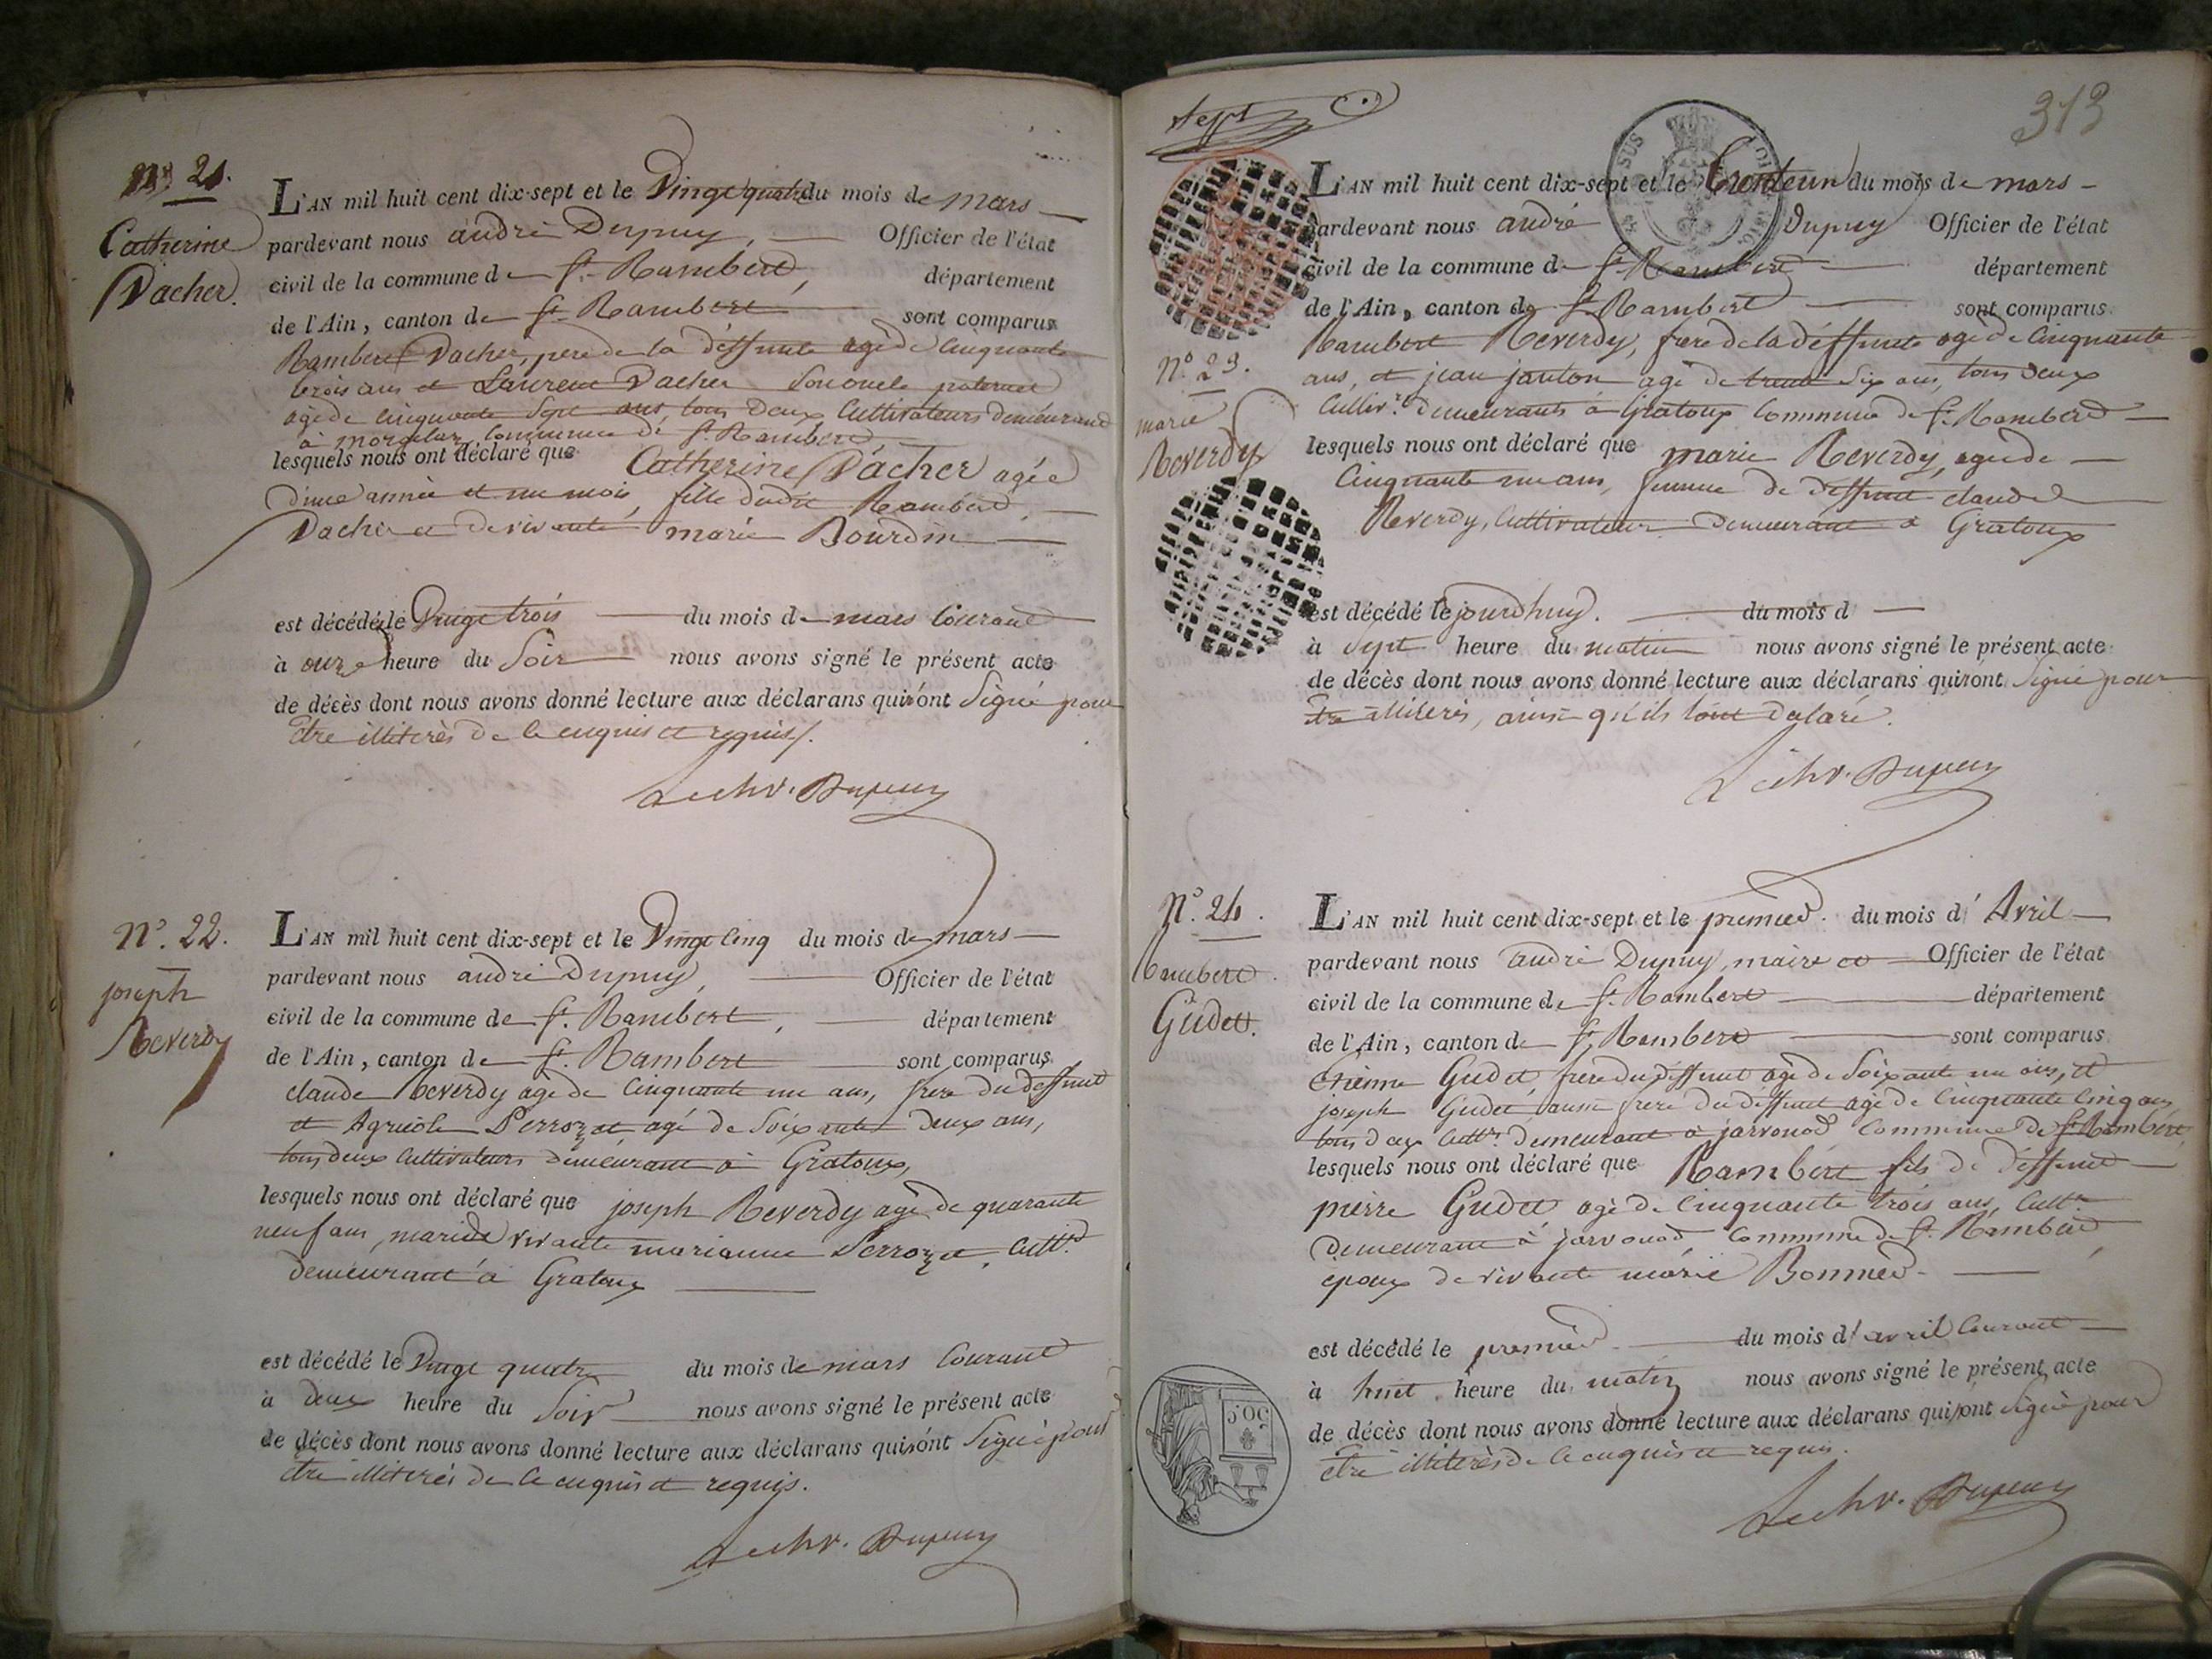 Nº 21.
Catherine
Dacher.
L'AN mil huit cent dix-sept et le Vingt quatre du mois de mars
pardevant nous andré Dupuy, Officier de l'état
civil de la commune de St. Rambert, département
de l'Ain, canton de St. Rambert sont comparus
Rambert Dacher, pere de la deffunte agé de Cinquante
trois ans et Laurent Dacher son oncle paternel
agé de cinquante sept ans, tous deux Cultivateurs demeurant
à morgelas, commune de St. Rambert,
lesquels nous ont déclaré que Catherine Dacher agée
d'une année et un mois, fille dudit Rambert
Dacher et de vivante marie Bourdin
est décédé le Vingt trois du mois de mars Courant
à onze heure du Soir nous avons signé le présent acte
de décès dont nous avons donné lecture aux déclarans qui n'ont Signé pour
être illiterés de ce enquis et requis.
Le chv. Dupuy
Nº. 22.
joseph
Reverdy
L'AN mil huit cent dix-sept et le Vingt cinq du mois de mars
pardevant nous andré Dupuy, Officier de l'état
civil de la commune de St. Rambert, département
de l'Ain, canton de St. Rambert sont comparus
claude Reverdy agé de Cinquante un ans, frere du deffunt
et Agricole Perrozet agé de Soixante deux ans,
tous deux Cultivateurs demeurant à Gratoux,
lesquels nous ont déclaré que joseph Reverdy agé de quarante
neuf ans, marié de vivante marianne Perrozet, Cultr.
demeurant à Gratoux
est décédé le Vingt quatre du mois de mars Courant
à deux heure du Soir nous avons signé le présent acte
de décès dont nous avons donné lecture aux déclarans qui n'ont Signé pour
être illiterés de ce enquis et requis.
Le chv. Dupuy
sept
313
Nº. 23.
marie
Reverdy
L'AN mil huit cent dix-sept et le trenteun du mois de mars
pardevant nous andré Dupuy Officier de l'état
civil de la commune de St. Rambert département
de l'Ain, canton de St. Rambert sont comparus
Rambert Reverdy, frere de la deffunte agé de Cinquante
ans, et jean janton agé de trente Six ans, tous deux
Cultivr. demeurants à Gratoux Commune de St. Rambert
lesquels nous ont déclaré que marie Reverdy, agée de
Cinquante un ans, femme de deffunt claude
Reverdy, Cultivateur demeurant à Gratoux
est décédé le jourd'huy. du mois d
à Sept heure du matin nous avons signé le présent acte
de décès dont nous avons donné lecture aux déclarans qui n'ont Signé pour
être illiterés, ainsi qu'ils l'ont déclaré.
Le chv. Dupuy
Nº. 24.
Rambert
Gudet.
L'AN mil huit cent dix-sept et le premier du mois d'Avril
pardevant nous andré Dupuy, maire et Officier de l'état
civil de la commune de St. Rambert département
de l'Ain, canton de St. Rambert sont comparus
Etienne Gudet, frere du deffunt agé de Soixante un ans, et
joseph Gudet aussi frere du deffunt agé de Cinquante Cinq ans
tous deux Cultrs. demeurant à jarvonod Commune de St. Rambert
lesquels nous ont déclaré que Rambert fils de deffunt
pierre Gudet agé de Cinquante trois ans, Cultr.
demeurant à jarvonod Commune de St. Rambert
epoux de vivante marie Bonnet
est décédé le premier du mois d'avril Courant
à huit heure du matin nous avons signé le présent acte
de décès dont nous avons donné lecture aux déclarans qui n'ont Signé pour
être illiterés de ce enquis et requis.
50 C.
Le chv. Dupuy